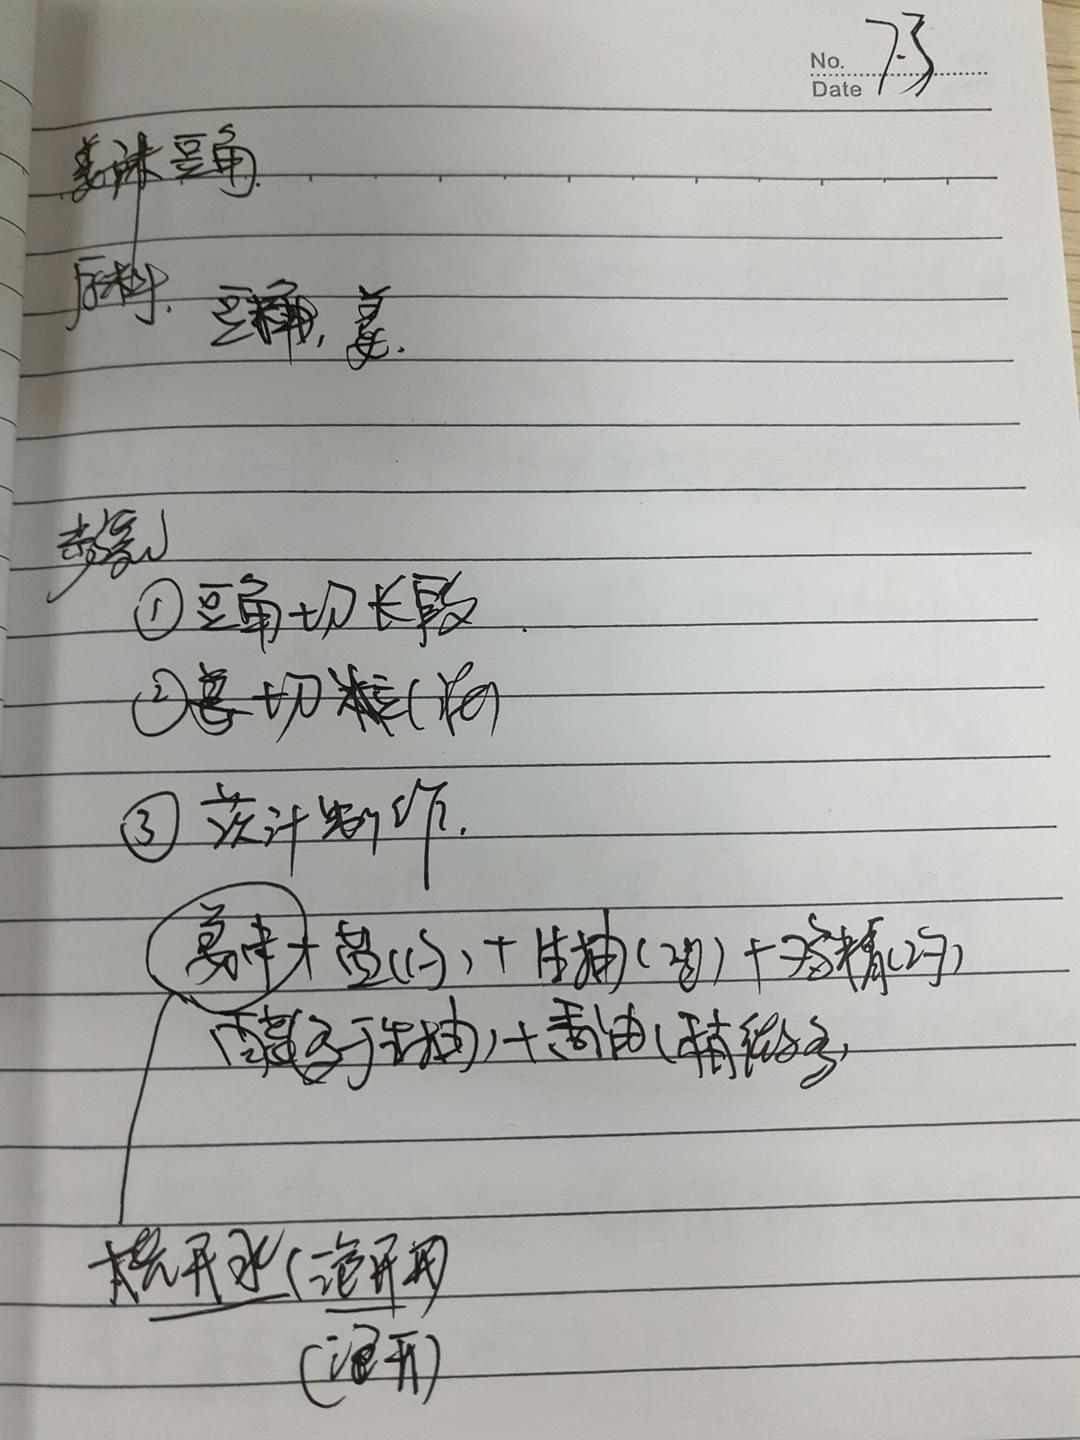 No. 7.3
Date
姜味豆角.
原料.
豆角, 姜.
步骤
①豆角切长段.
②姜切粒(
③ 计制作.
姜味+盐(1勺)+生抽(2勺)+鸡精(2勺)
多于生抽)+香油(稍多)
浇开水(泡开
(泡开)